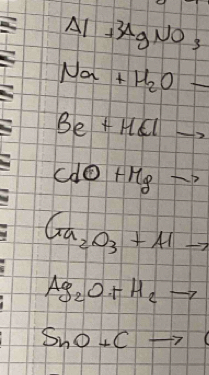 Al + 3AgNO₃
Na + H₂O –
Be + HCl →
CdO + Hg →
Ga₂O₃ + Al →
Ag₂O + H₂ →
SnO + C →